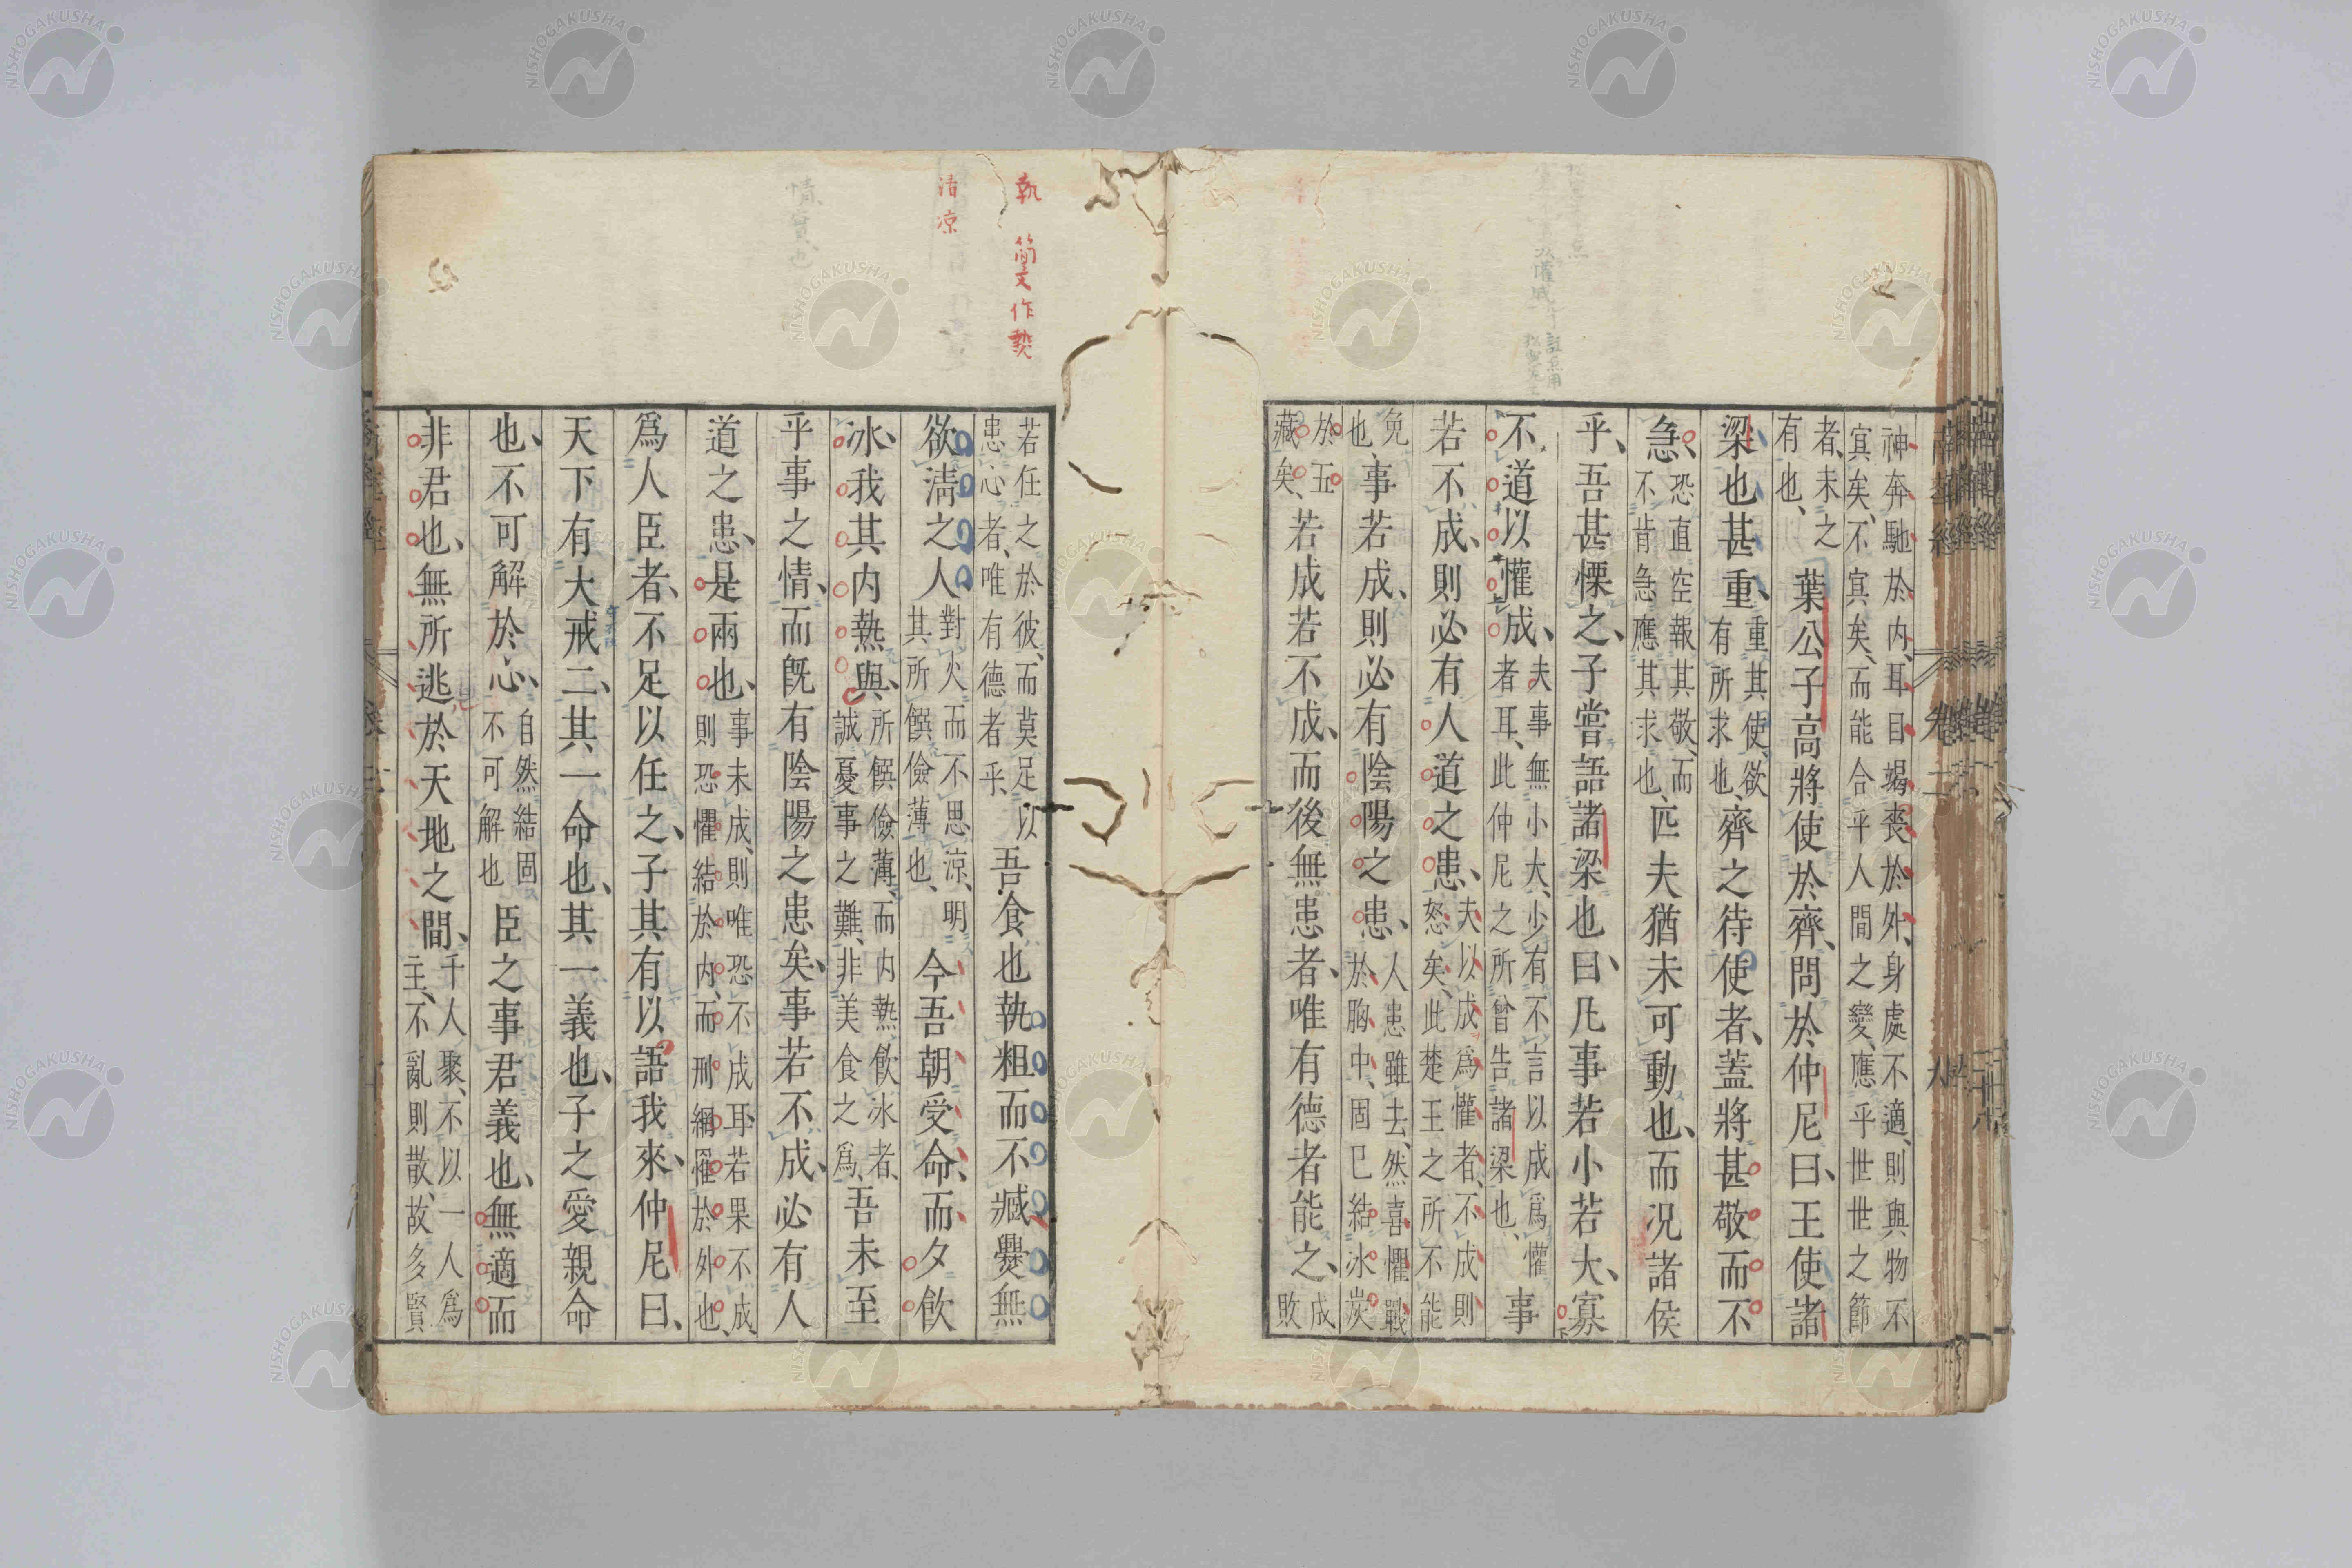 神奔馳於内、耳目竭喪於外、身處不適、則與物不
冝矣、不冝矣、而能合乎人間之變、應乎世世之節
者、未之
有也、
葉公子高將使於齊、問於仲尼曰、王使諸
梁也甚重、
重其使、欲
有所求也、
齊之待使者、蓋將甚敬而不
急、
恐直空報其敬、而
不肯急應其求也、
匹夫猶未可動也、而況諸侯
乎、吾甚慄之、子嘗語諸梁也曰、凡事若小若大、寡
不道以懽成、
夫事無小大、少有不言以成爲懽
者耳、此仲尼之所曾告諸梁也、
事
若不成、則必有人道之患、
夫以成爲懽者、不成則
怒矣、此楚王之所不能
免
也、
事若成、則必有陰陽之患、
人患雖去、然喜懼戰
於胸中、固已結冰炭
於五
藏矣、
若成若不成、而後無患者、唯有德者能之、
成
敗
若任之於彼、而莫足以
患心者、唯有德者乎、
吾食也執粗而不臧爨無
欲淸之人
對火而不思凉、明
其所饌儉薄也、
今吾朝受命、而夕飮
冰、我其内熱與、
所饌儉薄、而内熱飮冰者、
誠憂事之難、非美食之爲、
吾未至
乎事之情、而旣有陰陽之患矣、事若不成、必有人
道之患、是兩也、
事未成、則唯恐不成耳、若果不成
則恐懼結於内、而刑網罹於外也、
爲人臣者、不足以任之、子其有以語我來、仲尼曰、
天下有大戒二、其一命也、其一義也、子之愛親命
也、不可解於心、
自然結固
不可解也
臣之事君義也、無適而
非君也、無所逃於天地之間、
千人聚、不以一人爲
主、不亂則散、故多賢
執 簡文作熱
凊凉